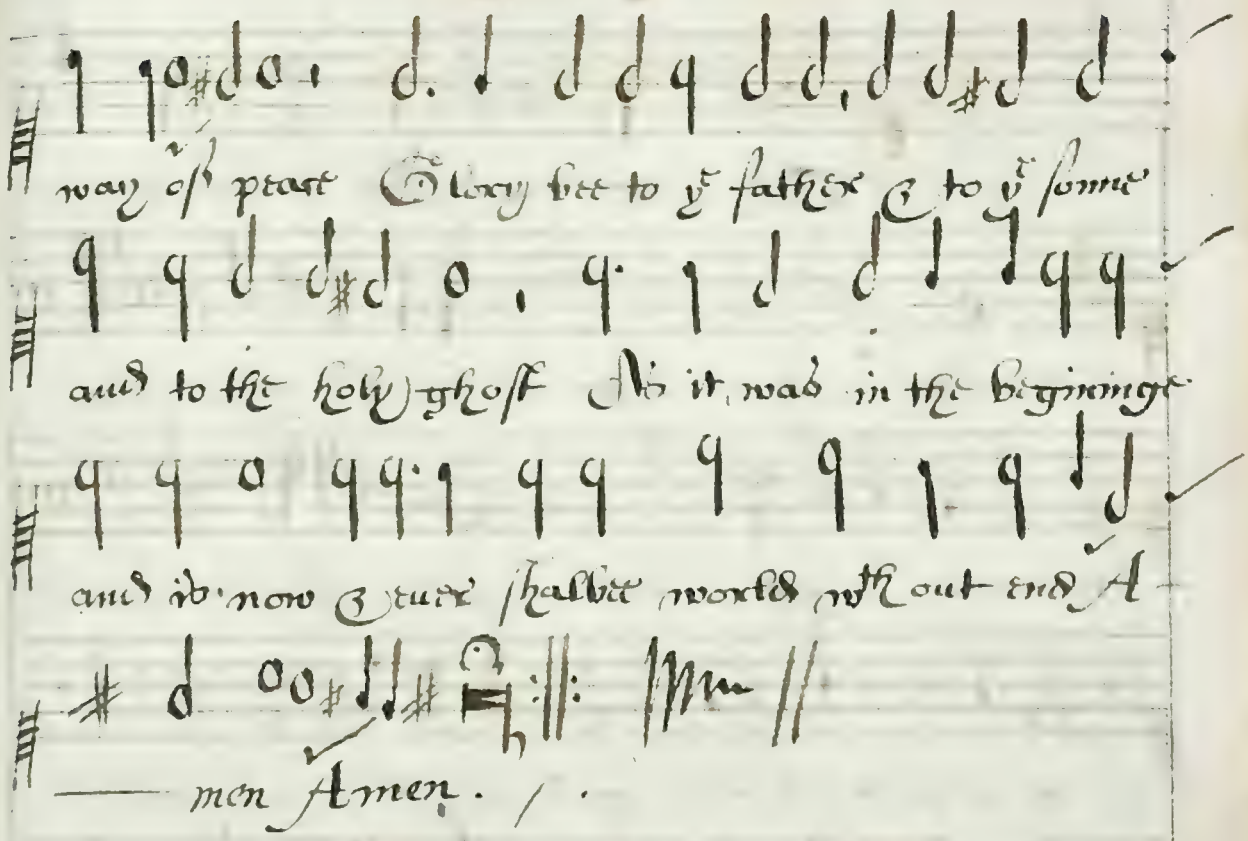 way of peace Glory bee to yͤ father & to yͤ sonne
and to the holy ghost As it was in the beginninge
and is now & euer shalbee world wth out end A
men Amen .